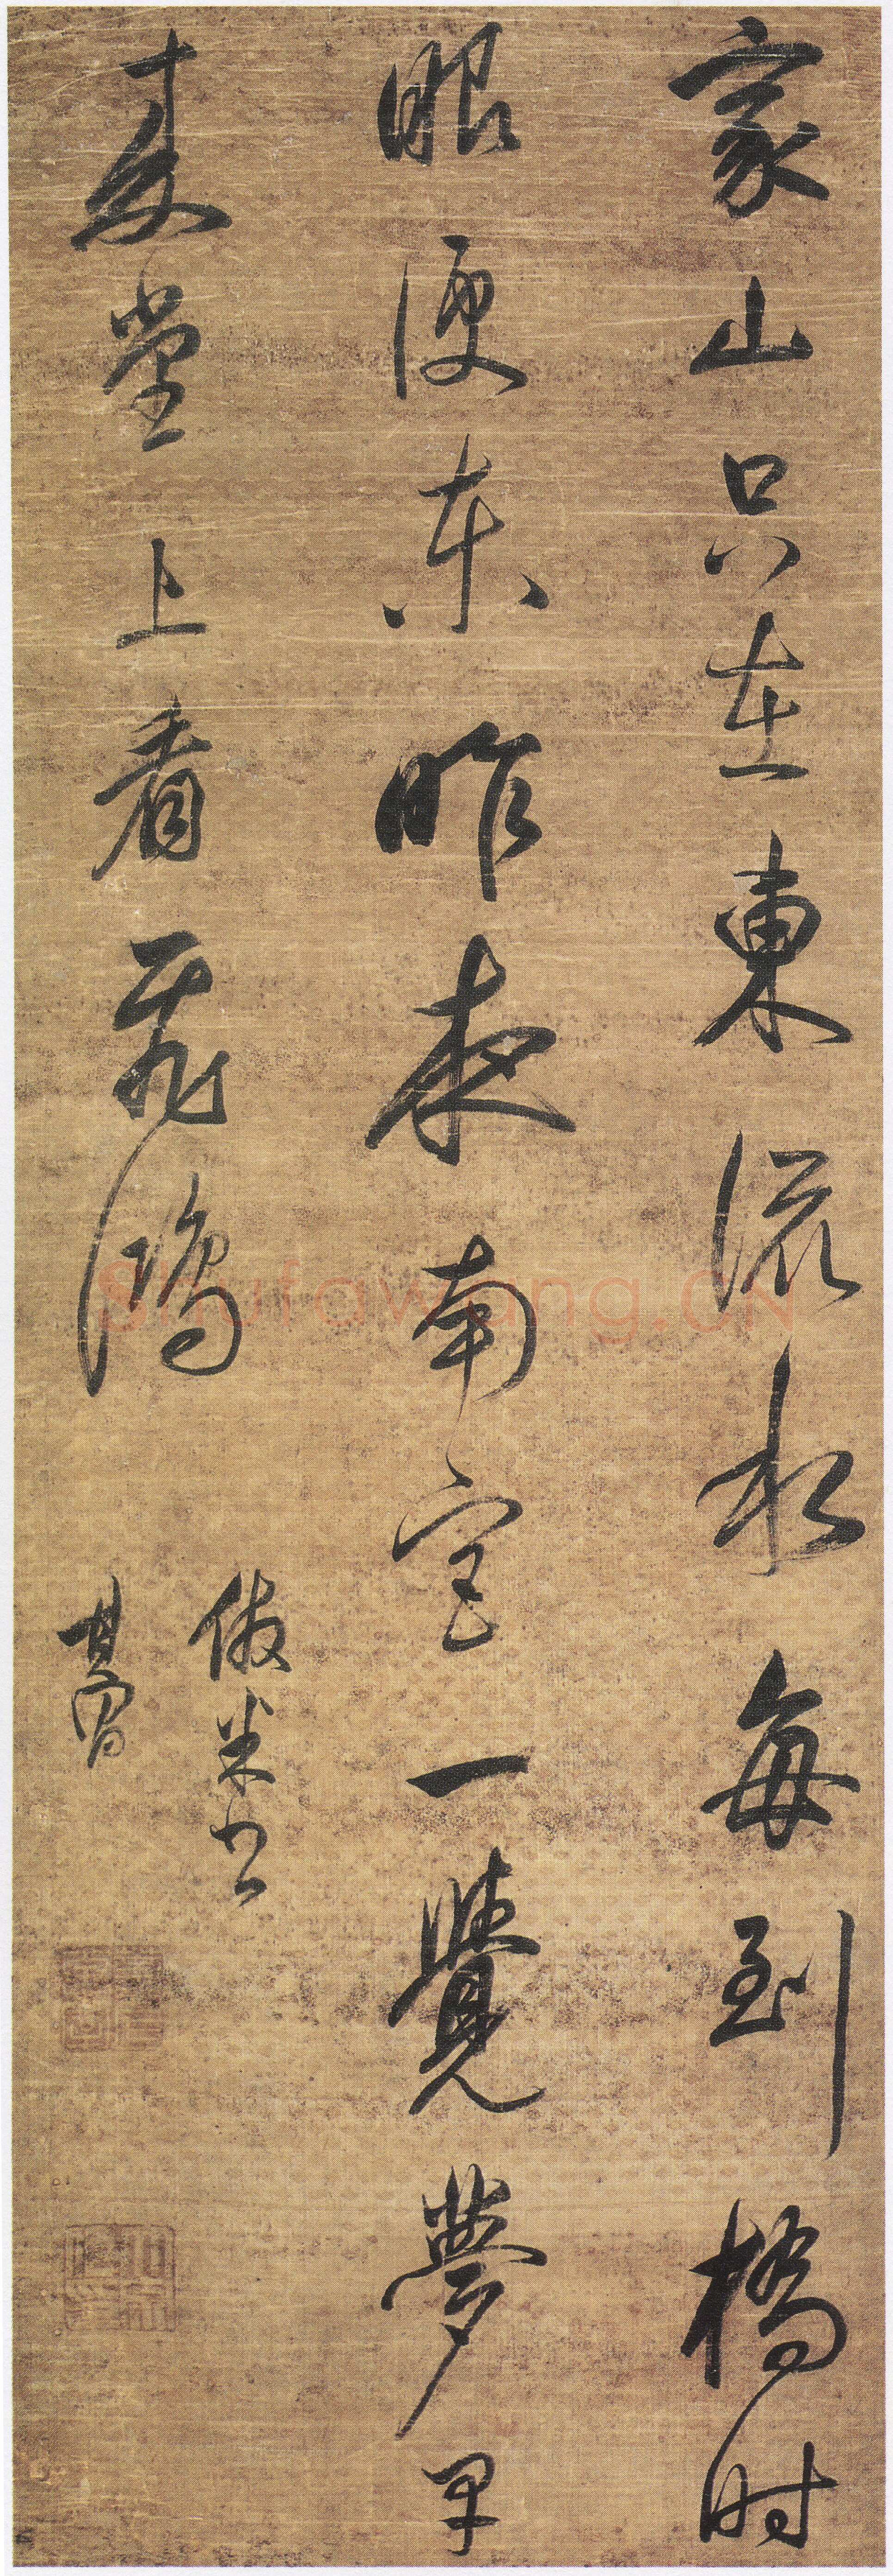 家山只在東流水每到橋時
眼便東昨夜南室一覺夢早
堂上看飛鴻
倣米書
其昌
Shufawang.CN